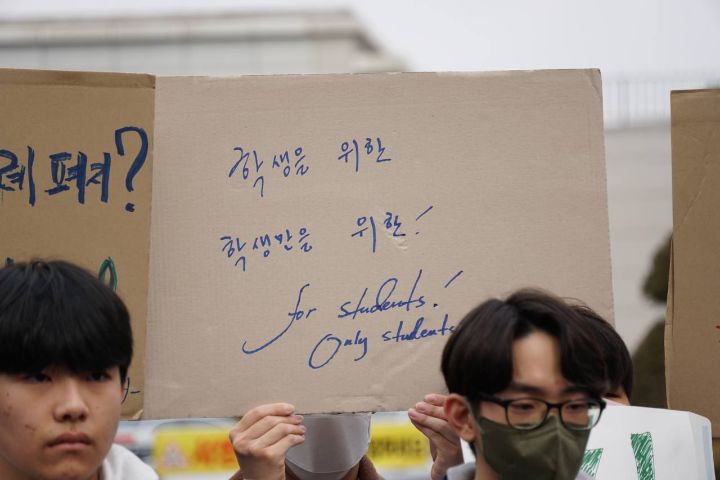 레 펴져?
학생을 위한
학생만을 위한!
for students!
Only students